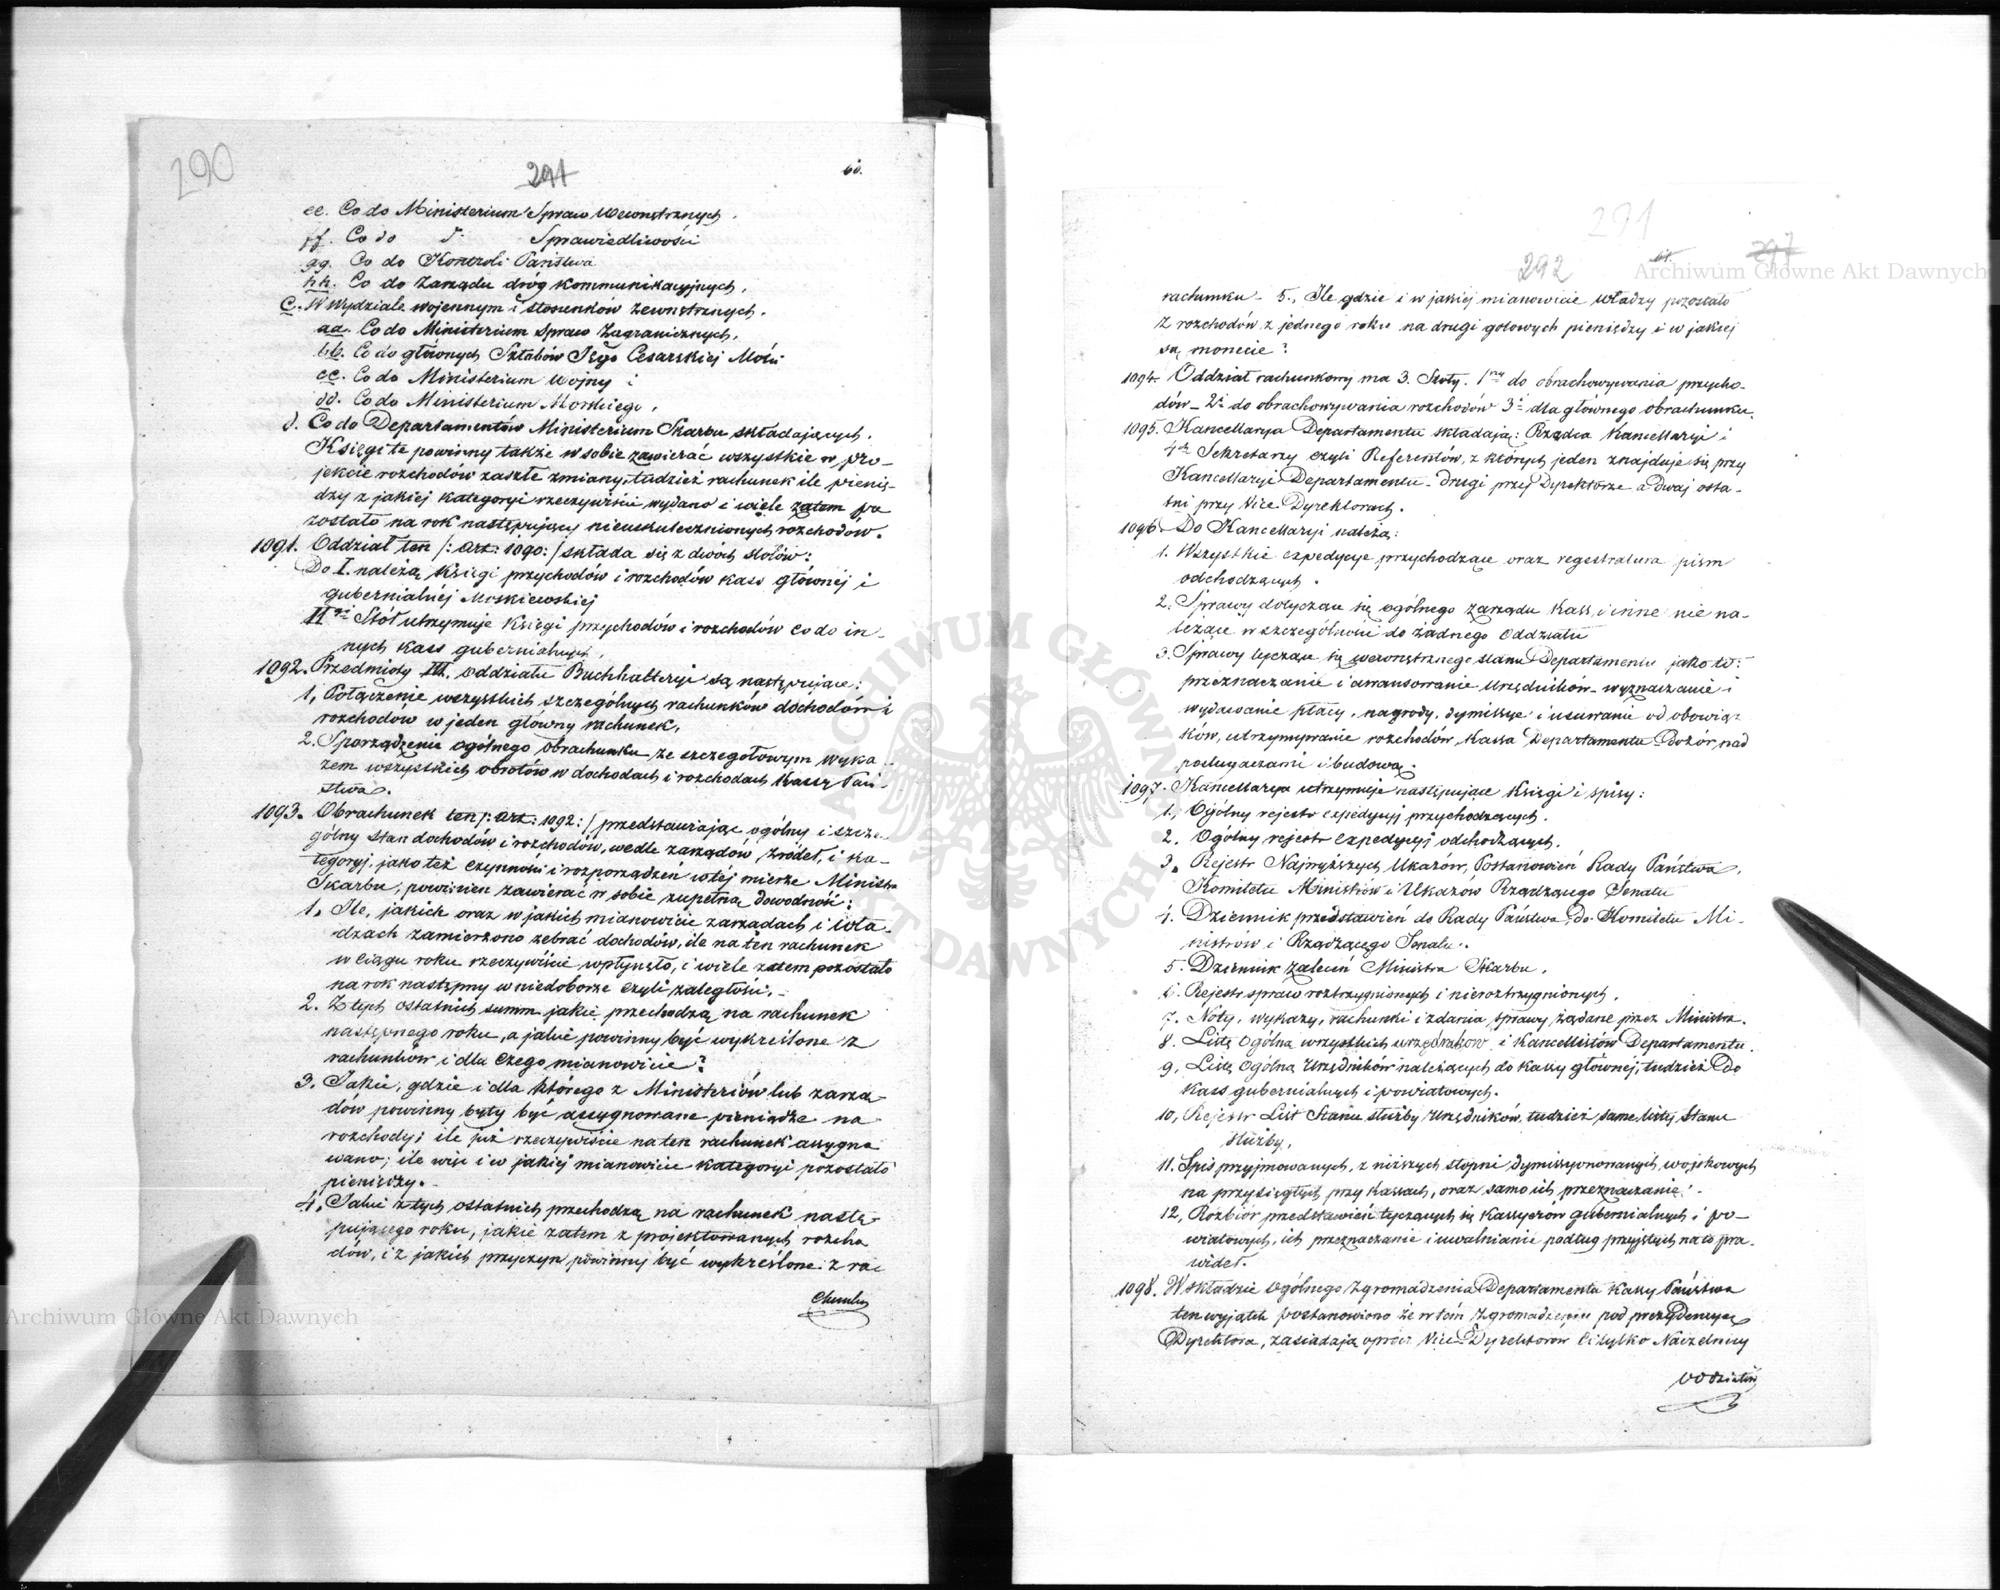 290
291
60.
ee. Co do Ministerium Spraw Wewnętrznych.
ff. Co do d° Sprawiedliwości
gg. Co do Kontroli Państwa
hh. Co do Zarządu dróg kommunikacyjnych,
C. W Wydziale wojennym i stosunków zewnętrznych.
aa. Co do Ministerium Spraw Zagranicznych,
bb. Co do głównych Sztabów Jego Cesarskiej Mości
cc. Co do Ministerium Wojny i
dd. Co do Ministerium Morskiego,
d. Co do Departamentów Ministerium Skarbu składających.
Księgi te powinny także w sobie zawierać wszystkie w pro-
jekcie rozchodów zaszłe zmiany, tudzież rachunek ile pienię-
dzy z jakiej kategoryi rzeczywiście wydano i wiele zatem po
zostało na rok następujący nieuskutecznionych rozchodów.
1091. Oddział ten /: Art: 1090:/ składa się z dwóch stołów:
Do I. należą księgi przychodów i rozchodów kass głównej i
gubernialnej Moskiewskiej
II gi Stół utrzymuje księgi przychodów i rozchodów co do in-
nych kass gubernialnych,
1092. Przedmioty III. oddziału Buchhalteryi są następujące:
1, Połączenie wszystkich szczególnych rachunków dochodów i
rozchodów w jeden główny rachunek,
2. Sporządzenie ogólnego obrachunku ze szczegółowym wyka-
zem wszystkich obrotów w dochodach i rozchodach Kassy Pań-
stwa.
1093. Obrachunek ten /: Art: 1092:/ przedstawiając ogólny i szcze-
gólny stan dochodów i rozchodów, wedle zarządów, źródeł, i ka-
tegoryj, jako też czynności i rozporządzeń w tej mierze Ministra
Skarbu, powinien zawierać w sobie zupełną dowodność:
1. Ile, jakich oraz w jakich mianowicie zarządach i wła-
dzach zamierzono zebrać dochodów, ile na ten rachunek
w ciągu roku rzeczywiście wpłynęło, i wiele zatem pozostało
na rok następny w niedoborze czyli zaległości,
2. Z tych ostatnich summ jakie przechodzą na rachunek
następnego roku, a jakie powinny być wykreślone z
rachunków i dla czego mianowicie?
3. Jakie, gdzie i dla którego z Ministeriów lub zarzą-
dów powinny były być assygnowane pieniądze na
rozchody; ile już rzeczywiście na ten rachunek assygno
wano; ile więc i w jakiej mianowicie kategoryi pozostało
pieniędzy.
4, Jakie z tych ostatnich przechodzą na rachunek nastę-
pującego roku, jakie zatem z projektowanych rozcho
dów, i z jakich przyczyn powinny być wykreślone z rac
chunku
291
292
61.
rachunku - 5., Ile gdzie i w jakiej mianowicie władzy pozostało
z rozchodów z jednego roku na drugi gotowych pieniędzy i w jakiej
są monecie?
1094. Oddział rachunkowy ma 3. Stoły. 1ny do obrachowywania przycho-
dów - 2i do obrachowywania rozchodów 3i dla głównego obrachunku.
1095. Kancellarya Departamentu składają: Rządca Kancellaryi i
4ch Sekretarzy czyli Referentów, z których jeden znajduje się przy
Kancellaryi Departamentu - drugi przy Dyrektorze a dwaj osta-
tni przy Vice Dyrektorach.
1096. Do Kancellaryi należą:
1. Wszystkie expedycye przychodzące oraz regestratura pism
odchodzących.
2. Sprawy dotyczące się ogólnego zarządu kass i inne nie na-
leżące w szczególności do żadnego oddziału
3. Sprawy tyczące się wewnętrznego stanu Departamentu jako to:
przeznaczanie i awansowanie Urzędników - wyznaczanie i
wydawanie płacy, nagrody, dymissye i usuwanie od obowiąz-
ków, utrzymywanie rozchodów, kassa Departamentu Dozór nad
posługaczami i budową.
1097. Kancellarya utrzymuje następujące księgi i spisy:
1., Ogólny rejestr expedycyj przychodzących.
2. Ogólny rejestr expedycyj odchodzących.
3. Rejestr Najwyższych Ukazów, Postanowień Rady Państwa,
Komitetu Ministrów i Ukazów Rządzącego Senatu
4. Dziennik przedstawień do Rady Państwa, do Komitetu Mi-
nistrów i Rządzącego Senatu.
5. Dziennik zaleceń Ministra Skarbu.
6. Rejestr spraw roztrzygnionych i nieroztrzygnionych.
7. Noty, wykazy, rachunki i zdania sprawy żądane przez Ministra.
8. Listę ogólną wszystkich urzędników i Kancellistów Departamentu.
9, Listę ogólną Urzędników należących do kassy głównej, tudzież Do
kass gubernialnych i powiatowych.
10, Rejestr List Stanu służby Urzędników, tudzież same listy Stanu
służby,
11. Spis przyjmowanych, z niższych stopni dymissyonowanych, wojskowych
na przysięgłych przy Kassach, oraz samo ich przeznaczanie.
12, Rozbiór przedstawień tyczących się Kassyerów gubernialnych i po-
wiatowych, ich przeznaczanie i uwalnianie podług przyjętych na to pra-
wideł.
1098. W składzie Ogólnego Zgromadzenia Departamentu Kassy Państwa
ten wyjątek postanowiono że w tém Zgromadzeniu pod prezydencyą
Dyrektora, zasiadają oprócz Vice Dyrektorów ci tylko Naczelnicy
oddziałów
Archiwum Główne Akt Dawnych
Archiwum Główne Akt Dawnych
ARCHIWUM GŁÓWNE AKT DAWNYCH